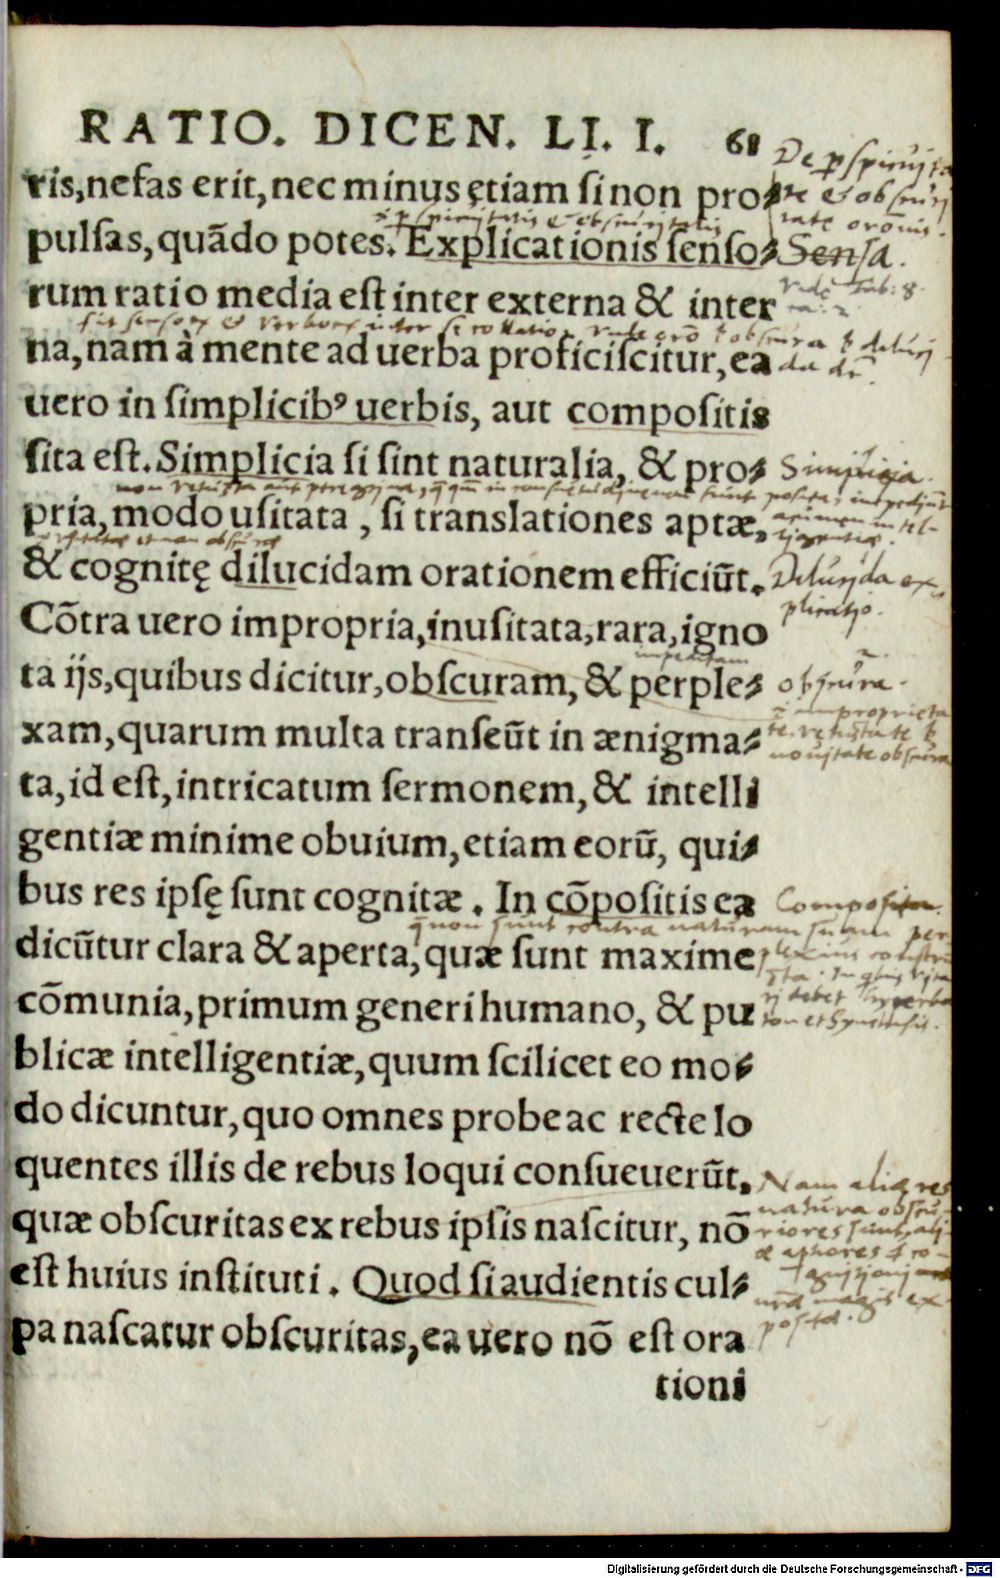 RATIO. DICEN. LI. I. 61
ris,nefas erit,nec minus etiam si non pro-
pulsas,quãdo potes. Explicationis senso-
rum ratio media est inter externa & inter
na,nam à mente ad uerba proficiscitur,ea
uero in simplicibꝰ uerbis, aut compositis
sita est. Simplicia si sint naturalia, & pro-
pria,modo usitata , si translationes aptæ,
& cognitę dilucidam orationem efficiũt.
Cõtra uero impropria,inusitata,rara,igno
ta ijs,quibus dicitur,obscuram, & perple-
xam,quarum multa transeũt in ænigma-
ta,id est,intricatum sermonem,& intelli
gentiæ minime obuium,etiam eorũ, qui-
bus res ipsę sunt cognitæ . In cõpositis ea
dicũtur clara & aperta,quæ sunt maxime
cõmunia,primum generi humano, & pu
blicæ intelligentiæ,quum scilicet eo mo-
do dicuntur,quo omnes probe ac recte lo
quentes illis de rebus loqui consueuerũt.
quæ obscuritas ex rebus ipsis nascitur, nõ
est huius instituti . Quod si audientis cul-
pa nascatur obscuritas,ea uero nõ est ora
tioni
De pspicuita
te & obscuri
tate
Sensa.
Simplicia.
Dilucida ex-
plicatio.
obscura.
improprieta
te, vetustate
nouitate obscura
Composita.
contra naturam suam per
Nam aliæ res
natura obscu-
riores sunt
magis ex
Digitalisierung gefördert durch die Deutsche Forschungsgemeinschaft - DFG